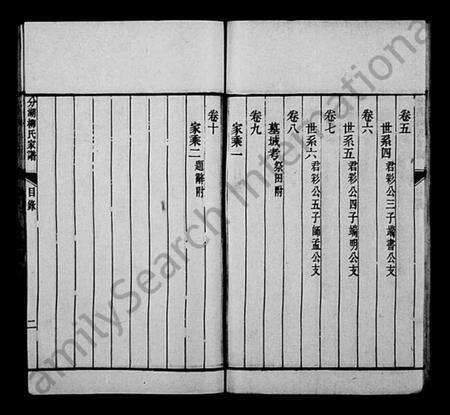 卷五
世系四 君彩公三子端書公支
卷六
世系五 君彩公四子端明公支
卷七
世系六 君彩公五子師孟公支
卷八
墓域考 祭田附
卷九
家乘一
卷十
家乘二 題辭附
分湖柳氏家譜 目錄 二
FamilySearch International